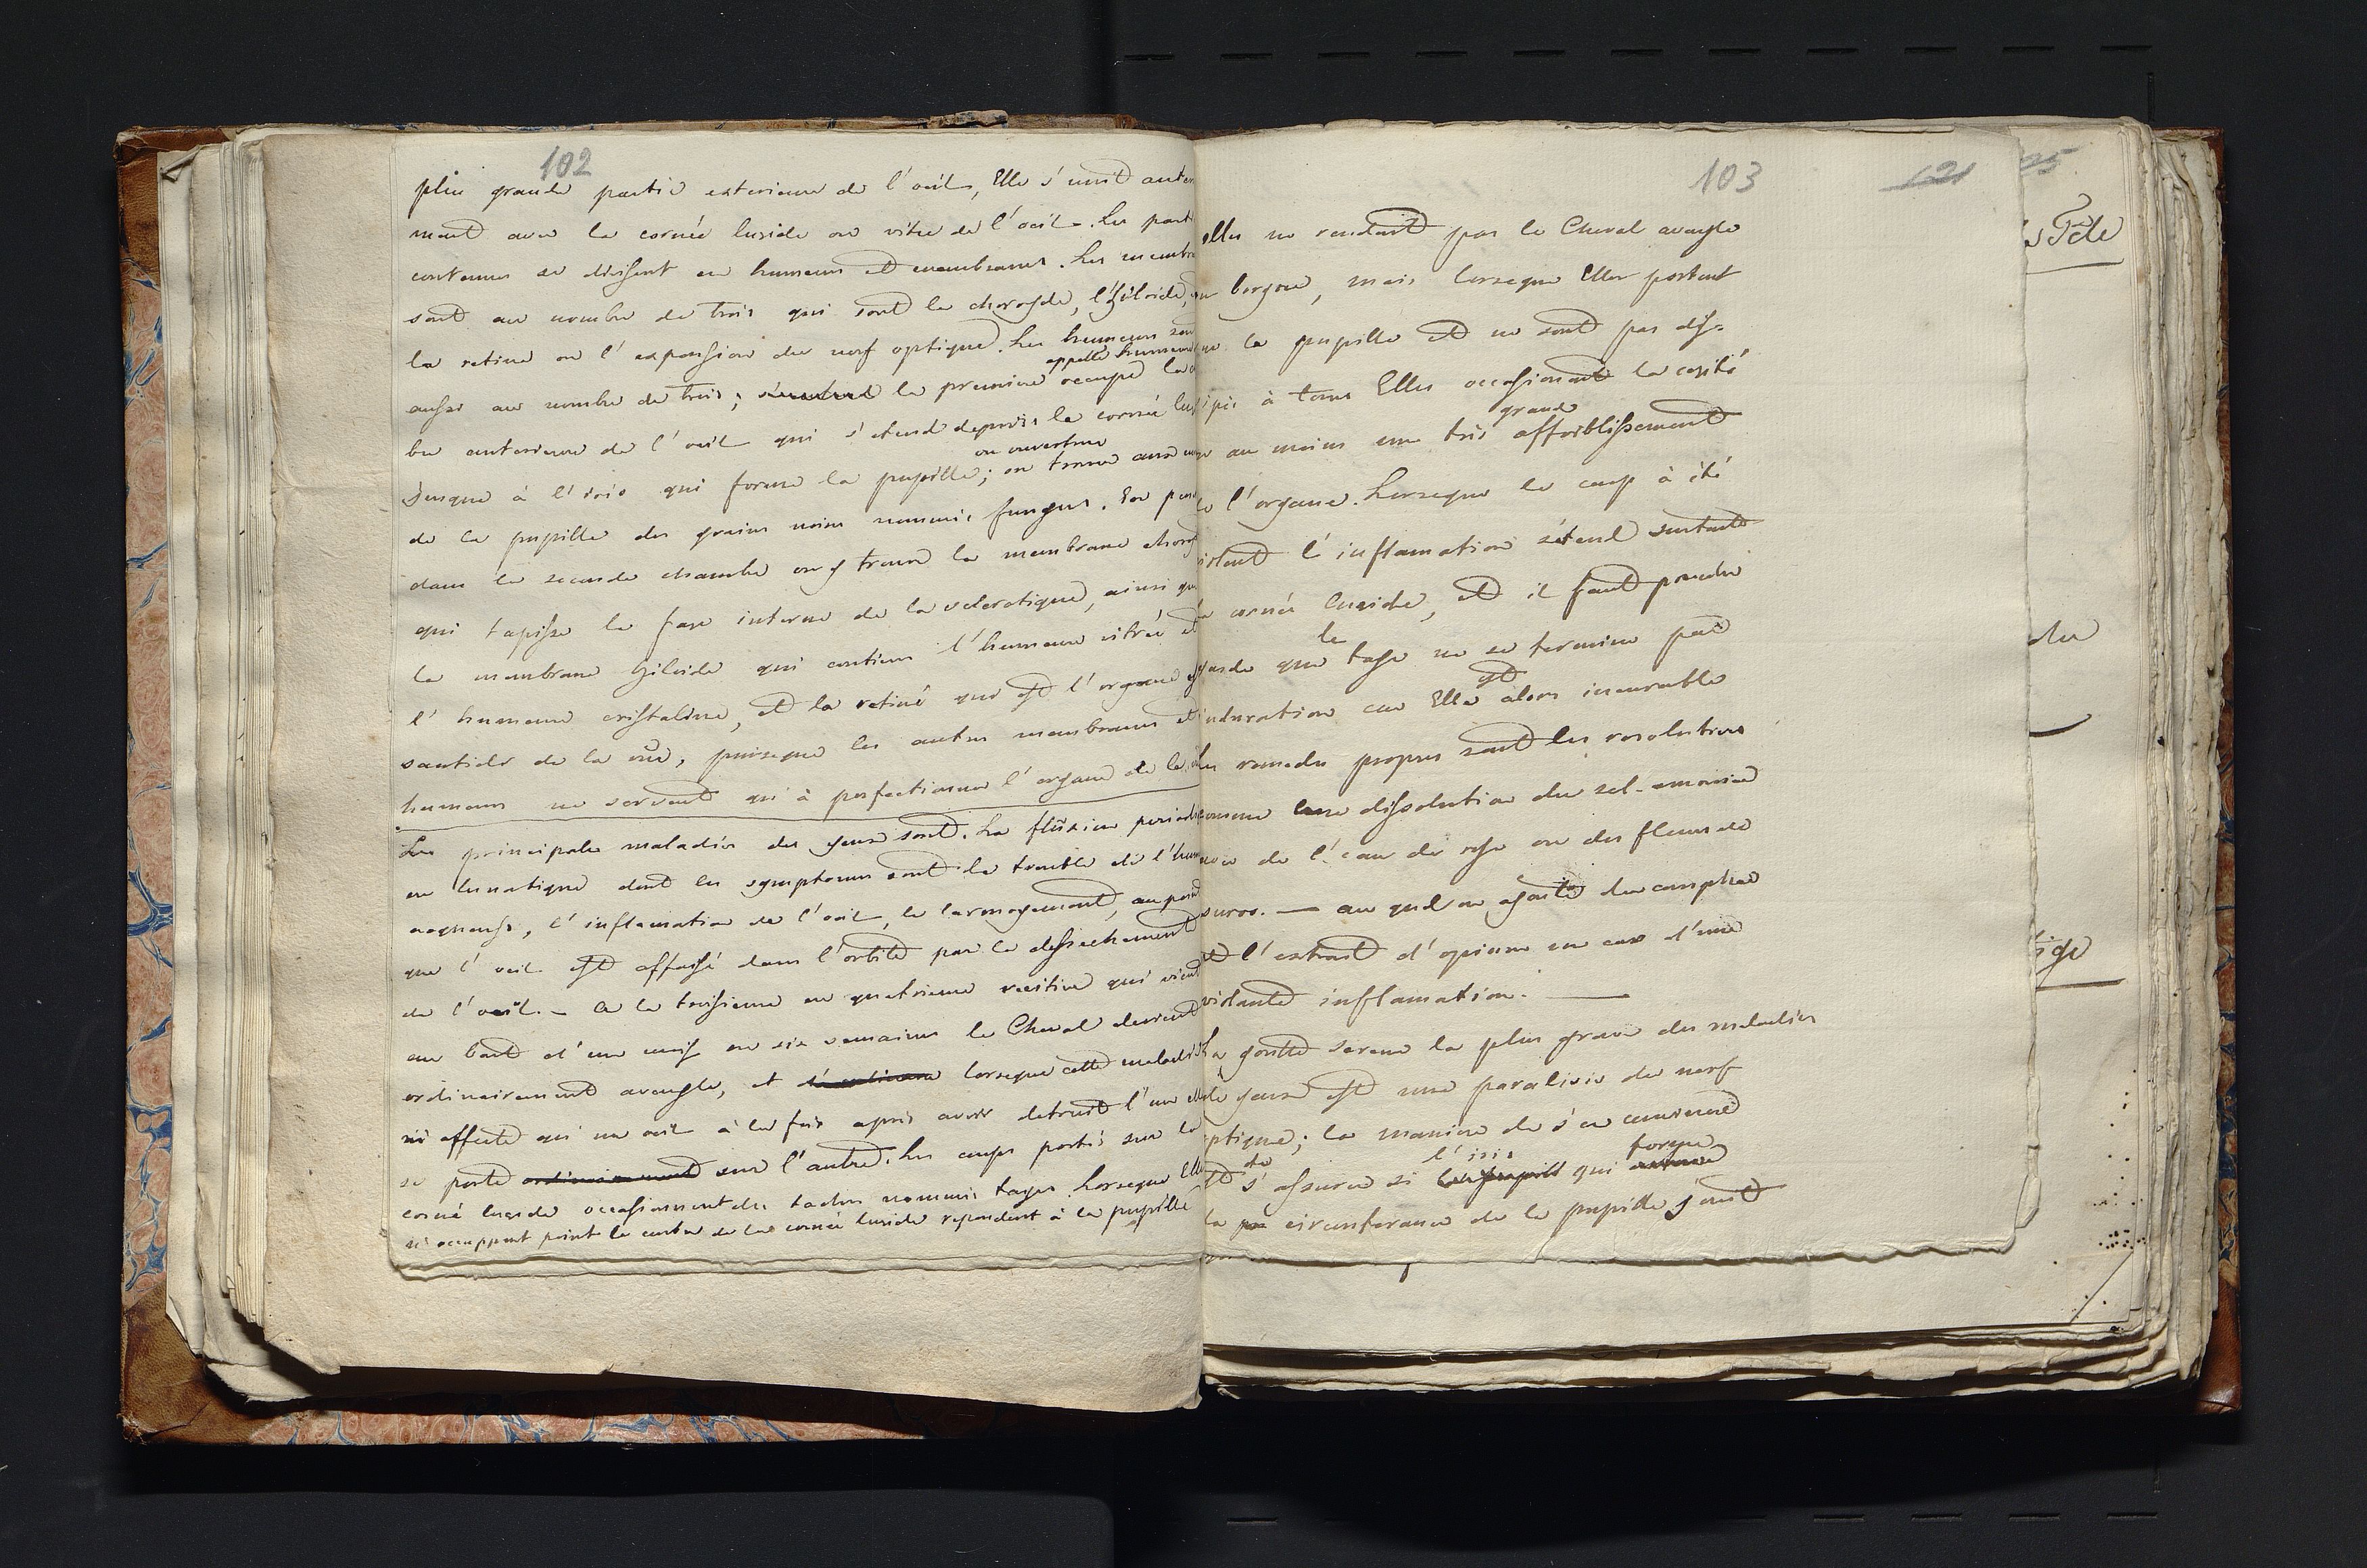 102
plus grande partie exterieure de l'oeil, Elle s'unit anter
ment avec la cornée luside ou vitre de l'oeil. Les part
contenues se divisent en humeurs et membranes. Les membra
sont au nombre de trois qui sont la choroyde, l'hiloide,
la retine ou l'expansion du nerf optique. Les humeurs son
aussi au nombre de trois; la premiere appellé humeur occupe la
bre anterieure de l'oeil qui s'etend depuis la cornée lus
Jusque à l'iris qui forme la pupille; ou ouverture on trouve aussi
de la pupille des grains noirs nommés fungus.
dans la seconde chambre on y trouve la membrane choroy
qui tapisse la fase interne de la sclerotique, ainsi que
la membrane hiloide qui contient l'humeur vitrée et
l'humeur cristaline, et la retine qui est l'organe
santiele de la vüe, puisque les autres membranes et
humeurs ne servent qu'à perfectionner l'organe de la
Les principales maladies des yeux sont. La flüxion periodi
ou lunatique dont les symptomes sont le trouble de l'hum
aqueuse, l'inflamation de l'oeil, le larmoyement,
que l'oeil est affaissé dans l'orbite par le dessechement
de l'oeil. — a la troisieme ou quatrieme recitive qui vient
au bout d'un mois ou six semaines le Cheval devient
ordinairement aveugle, et lorseque cette maladie
n'affecte qu'un oeil à la fois apres avoir detruit l'un elle
se porte ordinairement sur l'autre. Les coups portés sur la
cornée luside occasionnent des taches nommés tayes. Lorseque Elles
n'occuppent point le centre de la cornée luside repondent à la pupille
103
121
25
elles ne rendent pas le Cheval aveugle
ou borgne, mais lorseque Elles portent
sur la pupille et ne sont pas dis=
sipés à tems Elles occasionent la cesité
ou au moins une tres grande affoiblissement
de l'organe. Lorseque le coup à été
violent l'inflamation s'étend surtoute
la cornée luside, et il faut prendre
garde que le taye ne se termine par
induration car Elle est alors incurable
les remedes propres sont les resolutives
comme une dissolution du sel-amoniac
avec de l'eau de rose ou des fleurs de
sureau. — au quel on ajoute du camphre
et l'extrait d'opium en cas d'une
violante inflamation. —
La goutte serene la plus grave des maladies
de yeux est une paralisis du nerf
optique; la maniere de s'en convaincre
est de s'assurer si l'iris qui forme
la circonferance de la pupille jouit
la Tête
du